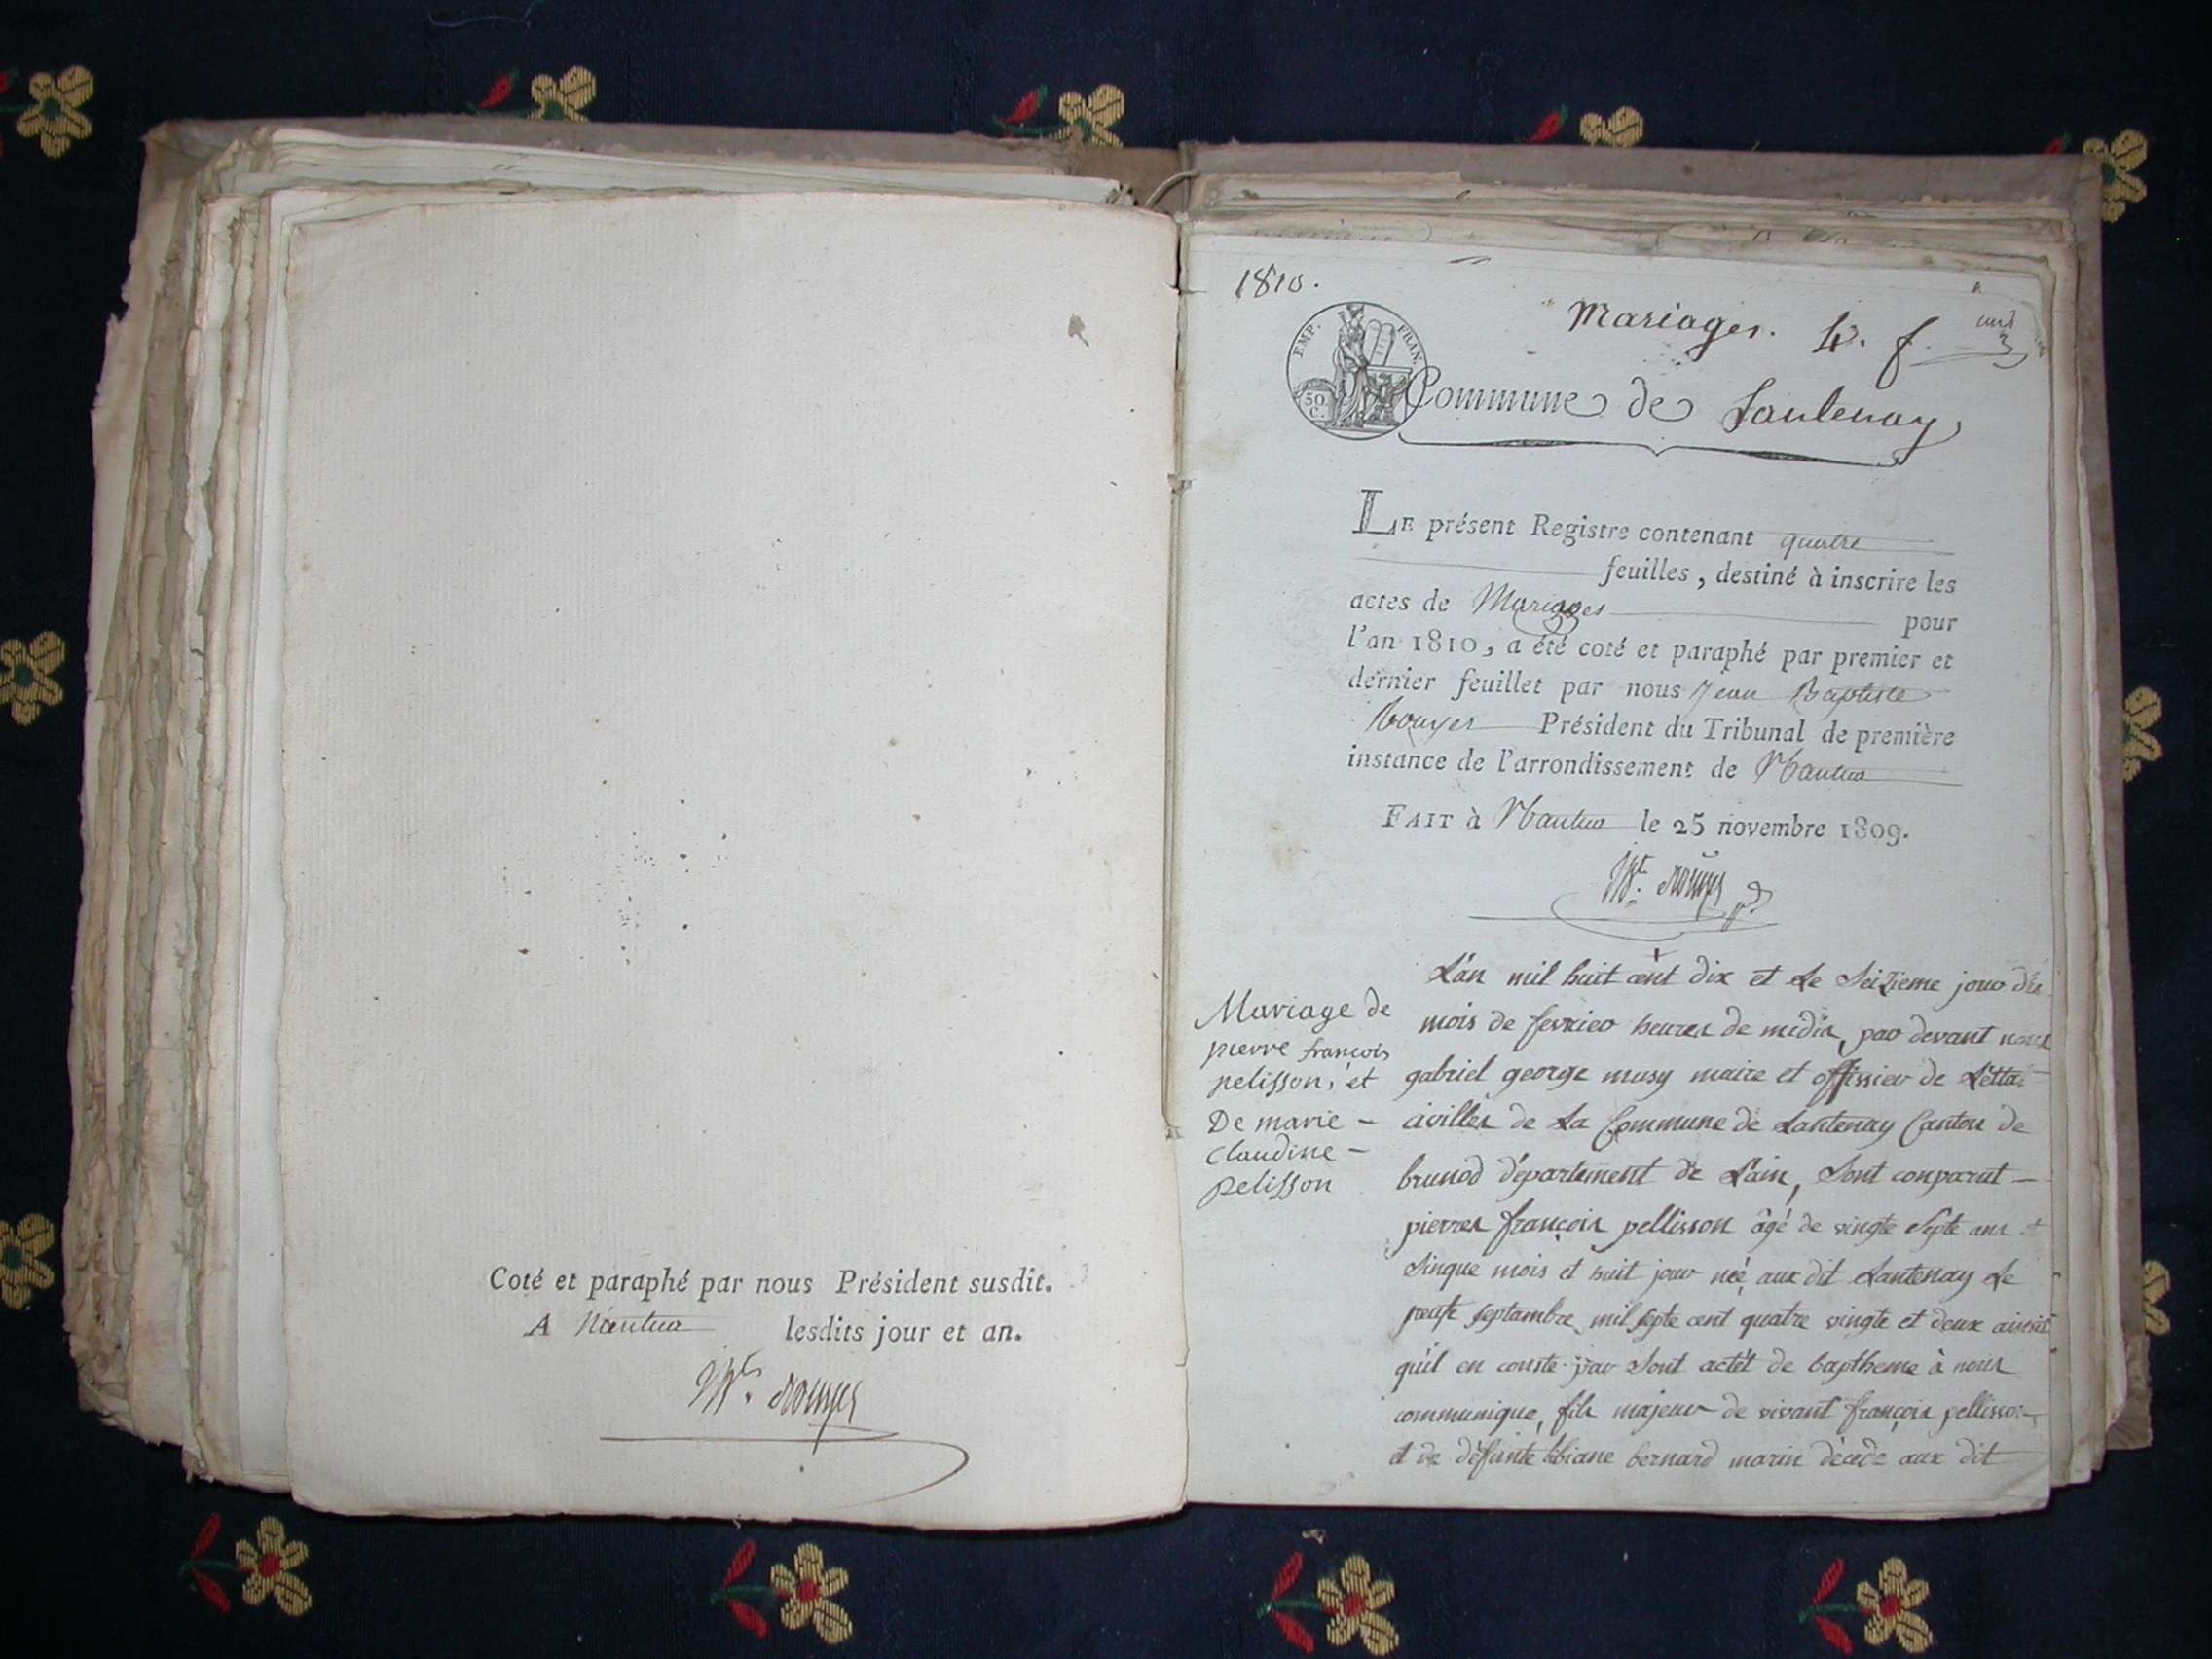 Coté et paraphé par nous Président susdit.
A Nantua lesdits jour et an.
1810.
Mariages. 4. f.
EMP. FRAN.
50
C.
Commune de Lantenay
LE présent Registre contenant quatre
feuilles, destiné à inscrire les
actes de Mariages pour
l'an 1810, a été coté et paraphé par premier et
dernier feuillet par nous Jean Baptiste
Président du Tribunal de première
instance de l'arrondissement de Nantua
FAIT à Nantua le 25 novembre 1809.
Mariage de
pierre françois
pelisson, et
De marie -
Claudine -
pelisson
L'án mil huit cent dix et Le Seizieme jour du
mois de fevrier heures de midis, par devant nous
gabriel george musy maire et offissier de L'étta
civilles de La Commune de Lantenay Canton de
brunod département de L'ain, Sont conparut -
pierres françois pellisson âgé de vingte Septe ans et
Sinque mois et huit jour néé aux dit Lantenay Le
septambre mil septe cent quatre vingte et deux ainsit
qu'il en conste par Sont actét de baptheme à nous
communique, fils majeur de vivant françois pellisson
et de défunte bibiane bernard marin décédé aux dit